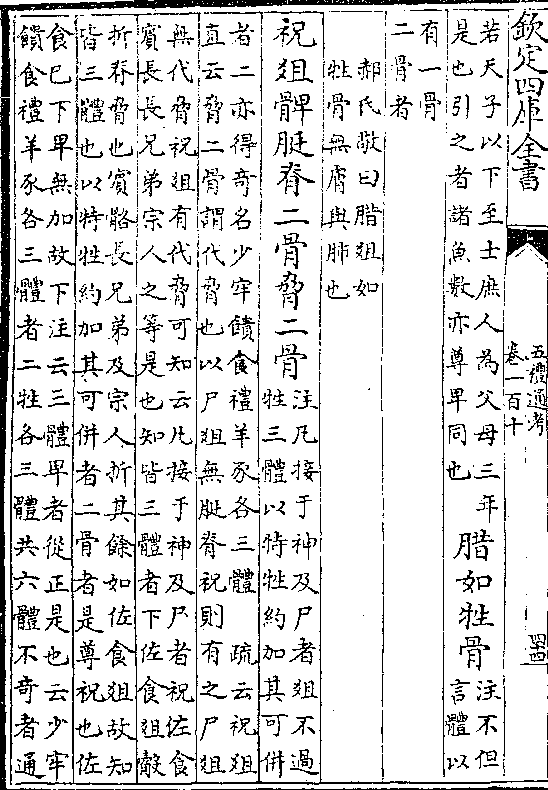 欽定四庫全書
五禮通考
卷一百十
四十四
若天子以下至士庶人為父母三年
是也引之者諸魚數亦尊卑同也
腊如牲骨
注不但
言體以
有一骨
二骨者
郝氏敬曰腊俎如
牲骨無膚與肺也
祝俎髀脡脊二骨脅二骨
注凡接于神及尸者俎不過
牲三體以特牲約加其可併
者二亦得奇名少牢饋食禮羊豕各三體 疏云祝俎
直云脅二骨謂代脅也以尸俎無脡脊祝則有之尸俎
無代脅祝俎有代脅可知云凡接于神及尸者祝佐食
賓長長兄弟宗人之等是也知皆三體者下佐食俎觳
折脊脅也賓骼長兄弟及宗人折其餘如佐食俎故知
皆三體也以特牲約加其可併者二骨者是尊祝也佐
食已下卑無加故下注云三體卑者從正是也云少牢
饋食禮羊豕各三體者二牲各三體共六體不奇者通